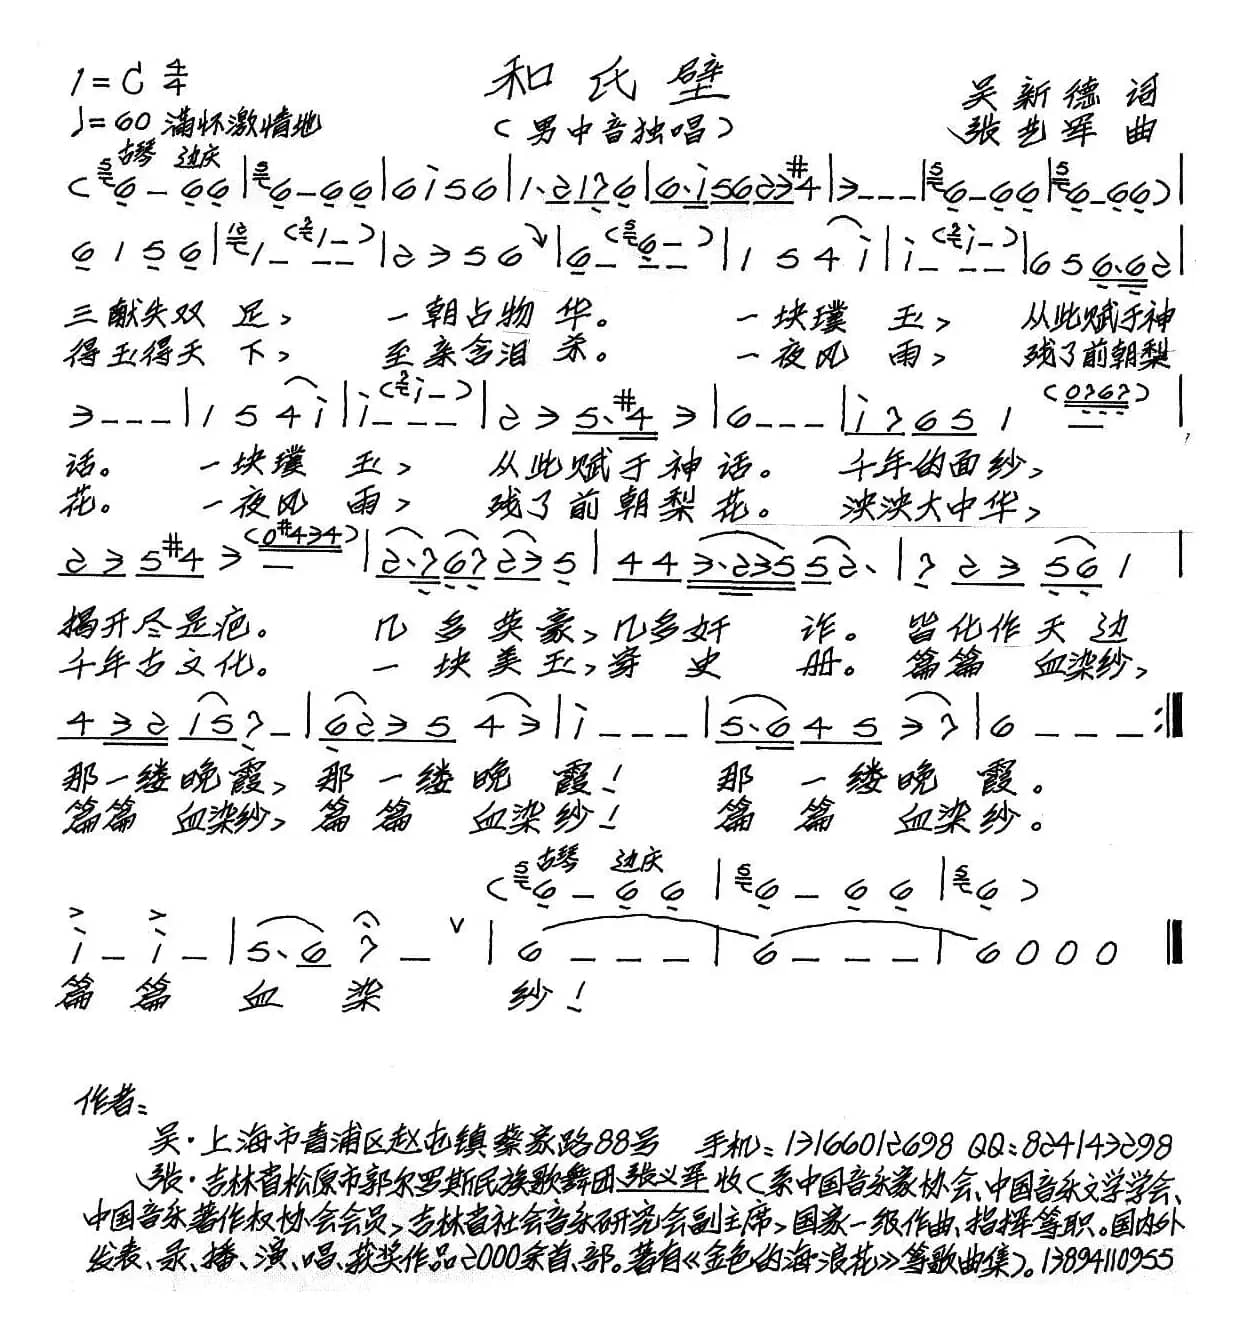 1=C 4/4 和氏璧 吴新德 词
♩=60 满怀激情地 (男中音独唱) 张艺军 曲
古琴 边庆
(6-66|6-66|6i56|1.2176|6.i5623#4|3---|6-66|6-66)|
6156|1-(1--)|2356|6-(6--)|154i|i-(i--)|656.62|
三献失双足, 一朝占物华。 一块璞玉, 从此赋于神
得玉得天下, 至亲含泪杀。 一夜风雨, 残了前朝梨
3---|154i|i---(i-)|235.#43|6---|i7651(0767)|
话。 一块璞玉, 从此赋于神话。 千年的面纱,
花。 一夜风雨, 残了前朝梨花。 泱泱大中华,
235#43(0#434)|2.767235|443.23552.|723561|
揭开尽是疤。 几多英豪,几多奸诈。 皆化作天边
千年古文化。 一块美玉,穿史册。 篇篇血染纱,
432157-|623543|i---|5.64537|6---:|
那一缕晚霞, 那一缕晚霞! 那一缕晚霞。
篇篇血染纱, 篇篇血染纱! 篇篇血染纱。
古琴 边庆
(6-66|6-66|6)
i-i-|5.67-|6---|6---|6000
篇篇血染纱!
作者:
吴·上海市青浦区赵屯镇蔡家路88号 手机:13166012698 QQ:824143298
张·吉林省松原市郭尔罗斯民族歌舞团张义军收(系中国音乐家协会、中国音乐文学学会、
中国音乐著作权协会会员,吉林省社会音乐研究会副主席,国家一级作曲、指挥等职。国内外
发表、录、播、演、唱、获奖作品2000余首、部。著有《金色的海浪花》等歌曲集)。13894110955